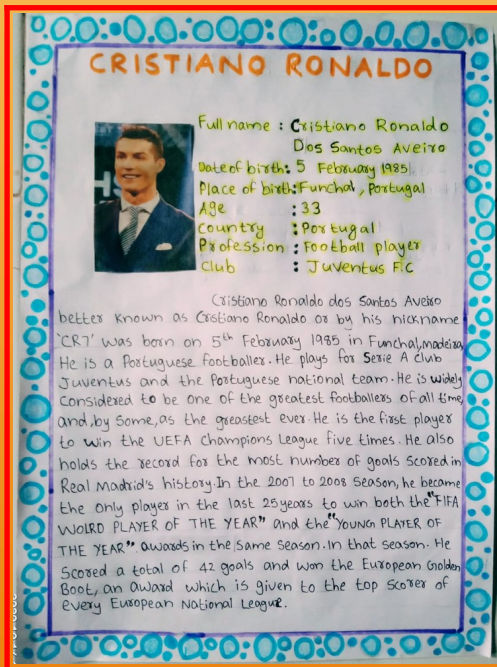 CRISTIANO RONALDO
Full name : Cristiano Ronaldo
Dos Santos Aveiro
Date of birth: 5 February 1985
Place of birth: Funchal, Portugal
Age : 33
country : Portugal
Profession : Football player
club : Juventus F.C
Cristiano Ronaldo dos Santos Aveiro
better known as Cristiano Ronaldo or by his nickname
'CR7' was born on 5th February 1985 in Funchal, madeira,
He is a Portuguese footballer. He plays for Serie A club
Juventus and the Portuguese national team. He is widely
Considered to be one of the greatest footballers of all time,
and, by Some, as the greastest ever. He is the first player
to win the UEFA Champions League five times. He also
holds the record for the most number of goals Scored in
Real Madrid's history. In the 2007 to 2008 Season, he became
the only player in the last 25 years to win both the "FIFA
WOLRD PLAYER OF THE YEAR" and the "YOUNG PLAYER OF
THE YEAR". awards in the Same Season. In that season. He
Scored a total of 42 goals and won the European Golden
Boot, an Award which is given to the top Scorer of
every European National League.